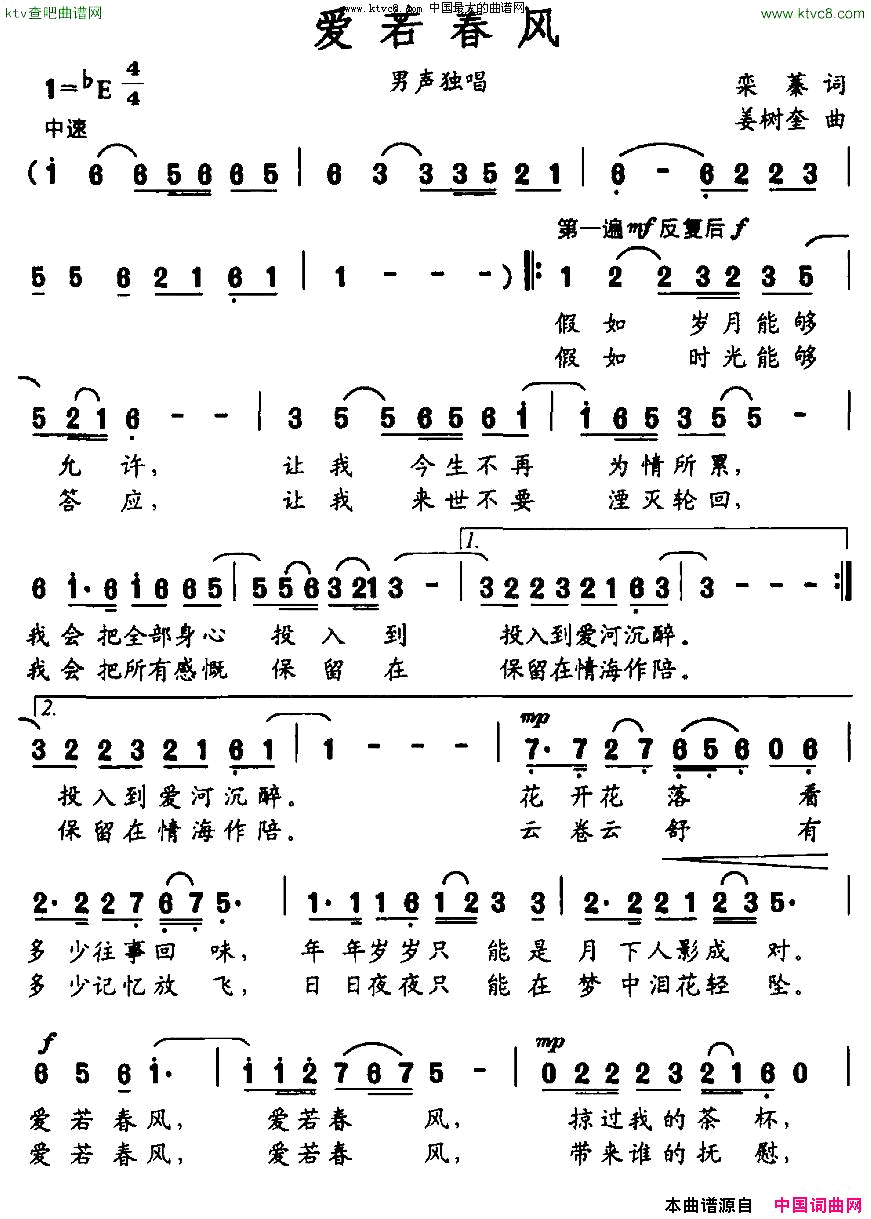 ktv查吧曲谱网
www.ktvc8.com 中国最大的曲谱网
www.ktvc8.com
爱若春风
1=♭E 4/4
男声独唱
栾蓁 词
中速
姜树奎 曲
(i 6 6 6 5 6 6 5 | 6 3 3 3 5 2 1 | 6 - 6 2 2 3 |
第一遍mf反复后f
5 5 6 2 1 6 1 | 1 - - - ) ‖: 1 2 2 3 2 3 5
假如 岁月能够
假如 时光能够
5 2 1 6 - - | 3 5 5 6 5 6 i | i 6 5 3 5 5 - |
允许, 让我 今生不再 为情所累,
答应, 让我 来世不要 湮灭轮回,
1.
6 i· 6 i 6 6 5 | 5 5 6 3 2 1 3 - | 3 2 2 3 2 1 6 3 | 3 - - - :‖
我会把全部身心 投入到 投入到爱河沉醉。
我会把所有感慨 保留在 保留在情海作陪。
2.
mp
3 2 2 3 2 1 6 1 | 1 - - - | 7· 7 2 7 6 5 6 0 6
投入到爱河沉醉。 花开花落 看
保留在情海作陪。 云卷云舒 有
2· 2 2 7 6 7 5· | 1· 1 1 6 1 2 3 3 | 2· 2 2 1 2 3 5· |
多少往事回味, 年年岁岁只能是月下人影成对。
多少记忆放飞, 日日夜夜只能在梦中泪花轻坠。
f
mp
6 5 6 i· | i i 2 7 6 7 5 - | 0 2 2 2 3 2 1 6 0 |
爱若春风, 爱若春风, 掠过我的茶杯,
爱若春风, 爱若春风, 带来谁的抚慰,
本曲谱源自 中国词曲网